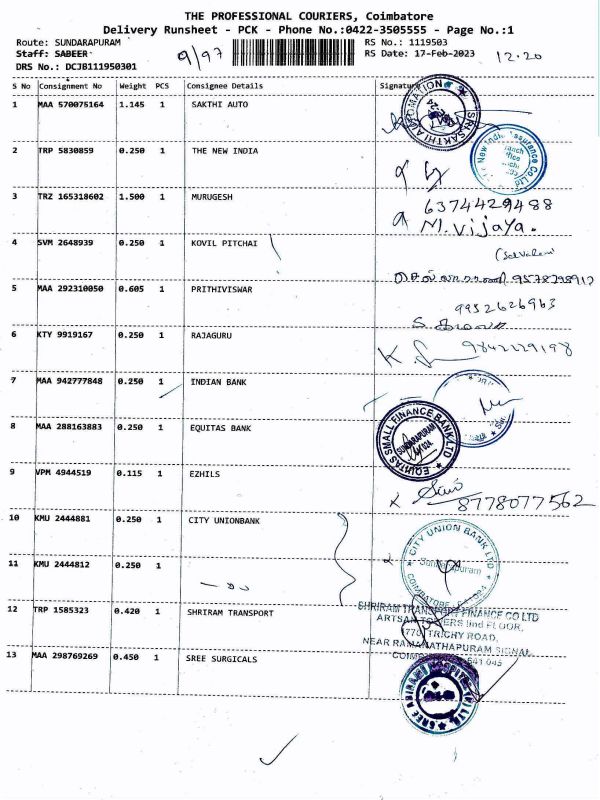 THE PROFESSIONAL COURIERS, Coimbatore
Delivery Runsheet - PCK - Phone No.:0422-3505555 - Page No.:1
Route: SUNDARAPURAM
Staff: SABEER
DRS No.: DCJB111950301
9/97
RS No.: 1119503
RS Date: 17-Feb-2023
12.20
S No Consignment No Weight PCS Consignee Details Signature
1 MAA 570075164 1.145 1 SAKTHI AUTO
SRI SAKTHI AUTOMATION
2 TRP 5830859 0.250 1 THE NEW INDIA
New India Assurance Co Ltd
3 TRZ 165318602 1.500 1 MURUGESH
6374429488
M. Vijaya.
4 SVM 2648939 0.250 1 KOVIL PITCHAI
(Selvarani
9578298912
5 MAA 292310050 0.605 1 PRITHIVISWAR
9952626963
6 KTY 9919167 0.250 1 RAJAGURU
9842229198
7 MAA 942777848 0.250 1 INDIAN BANK
8 MAA 288163883 0.250 1 EQUITAS BANK
EQUITAS SMALL FINANCE BANK LTD
SUNDARAPURAM
9 VPM 4944519 0.115 1 EZHILS
8778077562
10 KMU 2444881 0.250 1 CITY UNIONBANK
CITY UNION BANK LTD
Sundarapuram
11 KMU 2444812 0.250 1
12 TRP 1585323 0.420 1 SHRIRAM TRANSPORT
SHRIRAM TRANSPORT FINANCE CO LTD
ARTSAN TOWERS IInd FLOOR,
TRICHY ROAD,
NEAR RAMANATHAPURAM SIGNAL,
13 MAA 298769269 0.450 1 SREE SURGICALS
SREE ABIRAMI HOSPITAL (P) LTD